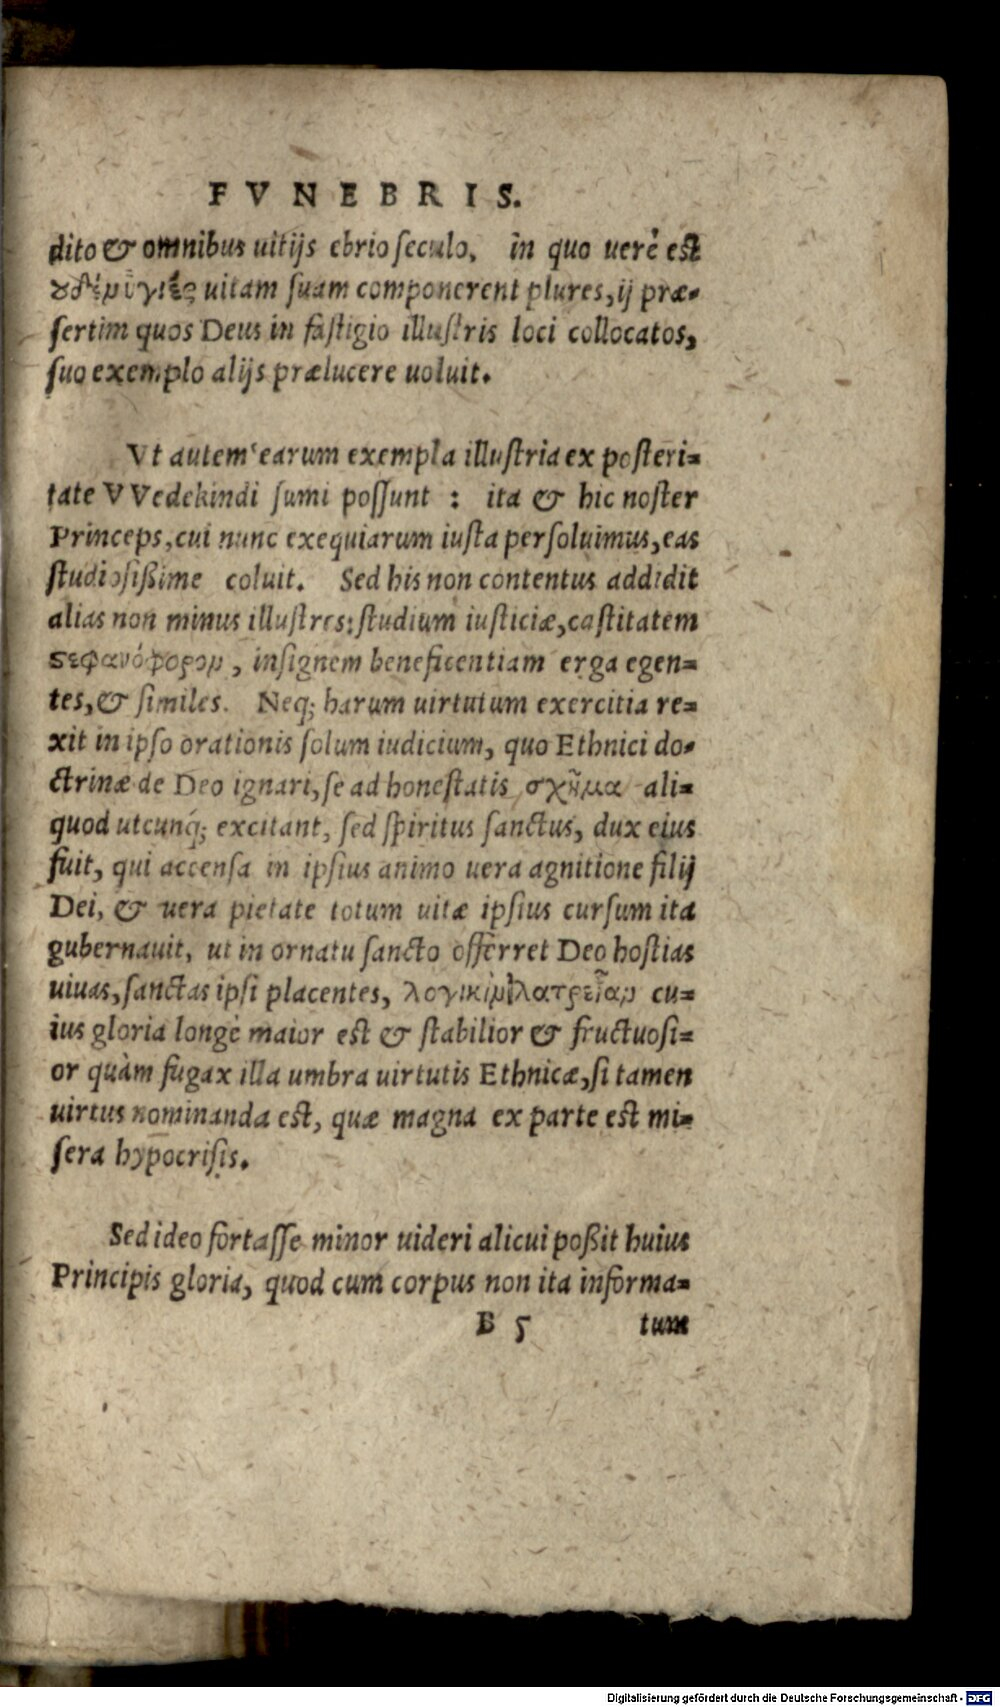 FVNEBRIS.
dito & omnibus uitijs ebrio seculo, in quo uerè est
οὐδὲν ὑγιὲς uitam suam componerent plures, ij præ-
sertim quos Deus in fastigio illustris loci collocatos,
suo exemplo alijs prælucere uoluit.
Vt autem earum exempla illustria ex posteri-
tate VVedekindi sumi possunt : ita & hic noster
Princeps, cui nunc exequiarum iusta persoluimus, eas
studiosißime coluit. Sed his non contentus addidit
alias non minus illustres: studium iusticiæ, castitatem
ϛεφανόφορον, insignem beneficentiam erga egen-
tes, & similes. Neq; harum uirtutum exercitia re-
xit in ipso orationis solum iudicium, quo Ethnici do-
ctrinæ de Deo ignari, se ad honestatis σχῆμα ali-
quod utcunq́; excitant, sed spiritus sanctus, dux eius
fuit, qui accensa in ipsius animo uera agnitione filij
Dei, & uera pietate totum uitæ ipsius cursum ita
gubernauit, ut in ornatu sancto offerret Deo hostias
uiuas, sanctas ipsi placentes, λογικὴν λατρείαν cu-
ius gloria longè maior est & stabilior & fructuosi-
or quàm fugax illa umbra uirtutis Ethnicæ, si tamen
uirtus nominanda est, quæ magna ex parte est mi-
sera hypocrisis.
Sed ideo fortasse minor uideri alicui poßit huius
Principis gloria, quod cum corpus non ita informa-
B 5 tum
Digitalisierung gefördert durch die Deutsche Forschungsgemeinschaft - DFG